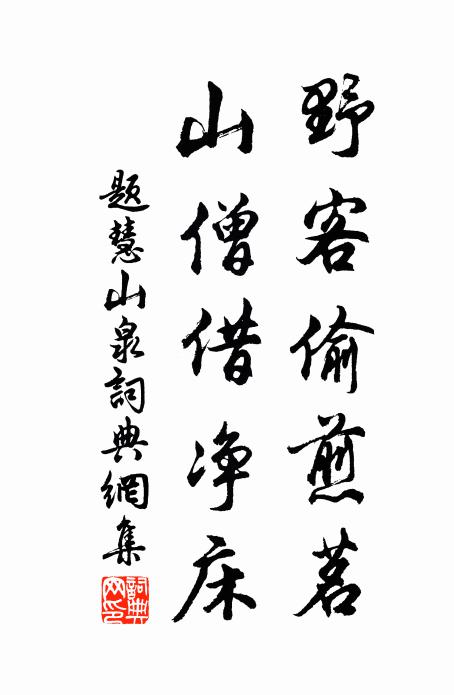 野客偷煎茗
山僧借净床
題慧山泉詞典網集
詞典網印